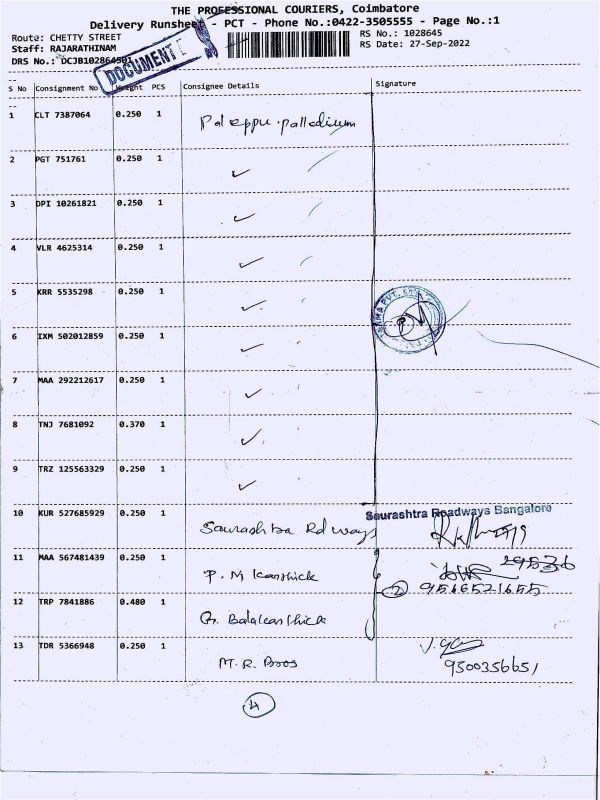 THE PROFESSIONAL COURIERS, Coimbatore
Delivery Runsheet - PCT - Phone No.:0422-3505555 - Page No.:1
Route: CHETTY STREET
RS No.: 1028645
Staff: RAJARATHINAM
RS Date: 27-Sep-2022
DRS No.: DCJB102864501
DOCUMENT
S No Consignment No Weight PCS Consignee Details Signature
1 CLT 7387064 0.250 1 palladium
2 PGT 751761 0.250 1 ✓
3 DPI 10261821 0.250 1 ✓
4 VLR 4625314 0.250 1 ✓
5 KRR 5535298 0.250 1 ✓
PVT.
6 IXM 502012859 0.250 1 ✓
7 MAA 292212617 0.250 1 ✓
8 TNJ 7681092 0.370 1 ✓
9 TRZ 125563329 0.250 1 ✓
10 KUR 527685929 0.250 1 Saurashtra Rd ways Saurashtra Roadways Bangalore
11 MAA 567481439 0.250 1 P. M Karthick 29536
2 9566521655
12 TRP 7841886 0.480 1 G. Balakarthick
13 TDR 5366948 0.250 1 M. R. Boos
9500356651
4